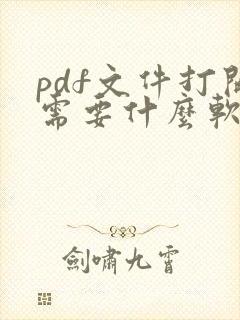 pdf文件打開
需要什麼軟
劍嘯九霄